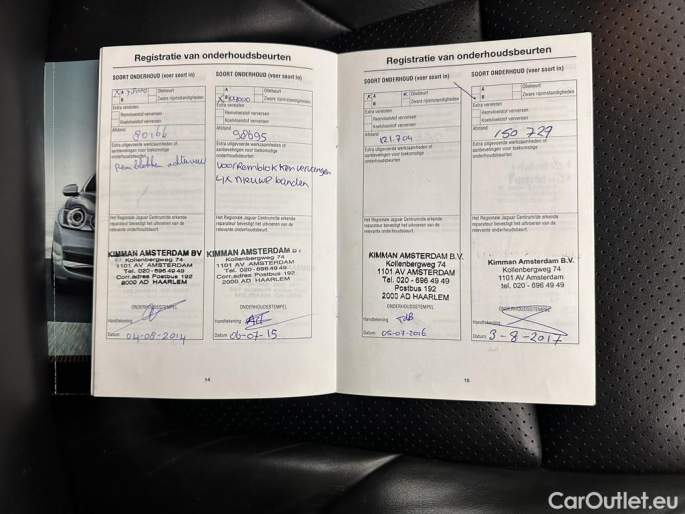 Registratie van onderhoudsbeurten
SOORT ONDERHOUD (voer soort in)
X A
B
Oliebeurt
Zware rijomstandigheden
Extra vereisten
Remvloeistof verversen
Koelvloeistof verversen
Afstand
80166
Extra uitgevoerde werkzaamheden of aanbevelingen voor toekomstige onderhoudsbeurten
Remblokken achter
Het Regionale Jaguar Centrum/de erkende reparateur bevestigt het uitvoeren van de relevante onderhoudsbeurt.
KIMMAN AMSTERDAM BV
Kollenbergweg 74
1101 AV AMSTERDAM
Tel. 020 - 695 49 49
Corr.adres Postbus 192
2000 AD HAARLEM
ONDERHOUDSSTEMPEL
Handtekening
Datum 04-08-2014
SOORT ONDERHOUD (voer soort in)
A
X B
Oliebeurt
Zware rijomstandigheden
Extra vereisten
Remvloeistof verversen
Koelvloeistof verversen
Afstand
98695
Extra uitgevoerde werkzaamheden of aanbevelingen voor toekomstige onderhoudsbeurten
voor Remblokken vervangen
4x nieuwe banden
Het Regionale Jaguar Centrum/de erkende reparateur bevestigt het uitvoeren van de relevante onderhoudsbeurt.
KIMMAN AMSTERDAM B.V.
Kollenbergweg 74
1101 AV AMSTERDAM
Tel. 020 - 696 49 49
Corr.adres Postbus 192
2000 AD HAARLEM
ONDERHOUDSSTEMPEL
Handtekening
Datum 06-07-15
14
Registratie van onderhoudsbeurten
SOORT ONDERHOUD (voer soort in)
X A
B
Oliebeurt
Zware rijomstandigheden
Extra vereisten
Remvloeistof verversen
Koelvloeistof verversen
Afstand
121.704
Extra uitgevoerde werkzaamheden of aanbevelingen voor toekomstige onderhoudsbeurten
Het Regionale Jaguar Centrum/de erkende reparateur bevestigt het uitvoeren van de relevante onderhoudsbeurt.
KIMMAN AMSTERDAM B.V.
Kollenbergweg 74
1101 AV AMSTERDAM
Tel. 020 - 696 49 49
Postbus 192
2000 AD HAARLEM
ONDERHOUDSSTEMPEL
Handtekening
Datum 05-07-2016
SOORT ONDERHOUD (voer soort in)
A
B
Oliebeurt
Zware rijomstandigheden
Extra vereisten
Remvloeistof verversen
Koelvloeistof verversen
Afstand
150 729
Extra uitgevoerde werkzaamheden of aanbevelingen voor toekomstige onderhoudsbeurten
Het Regionale Jaguar Centrum/de erkende reparateur bevestigt het uitvoeren van de relevante onderhoudsbeurt.
Kimman Amsterdam B.V.
Kollenbergweg 74
1101 AV Amsterdam
tel. 020 - 696 49 49
ONDERHOUDSSTEMPEL
Handtekening
Datum 3-8-2017
15
CarOutlet.eu